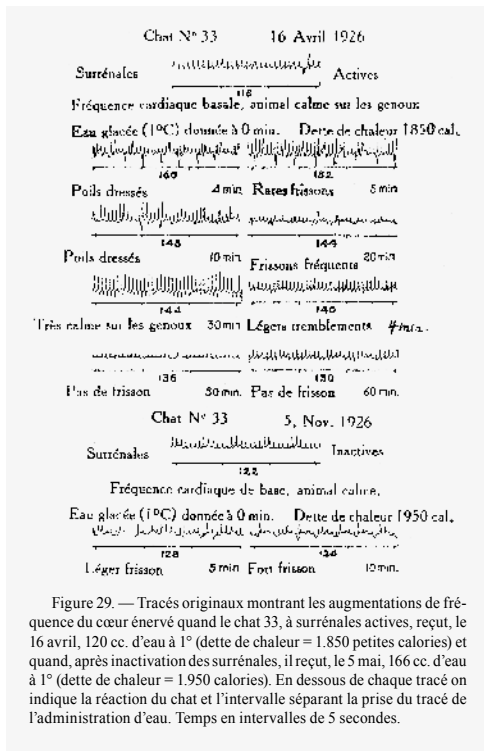 Chat Nº 33 16 Avril 1926
Surrénales Actives
118
Fréquence cardiaque basale, animal calme sur les genoux
Eau glacée (1ºC) donnée à 0 min. Dette de chaleur 1850 cal.
160 152
Poils dressés 4 min Rares frissons 5 min
148 144
Poils dressés 10 min Frissons fréquents 20 min
144 140
Très calme sur les genoux 30 min Légers tremblements 4 min.
136 130
Pas de frisson 50 min. Pas de frisson 60 min.
Chat Nº 33 5, Nov. 1926
Surrénales Inactives
122
Fréquence cardiaque de base, animal calme.
Eau glacée (1ºC) donnée à 0 min. Dette de chaleur 1950 cal.
128 134
Léger frisson 5 min Fort frisson 10 min.
Figure 29. — Tracés originaux montrant les augmentations de fré-
quence du cœur énervé quand le chat 33, à surrénales actives, reçut, le
16 avril, 120 cc. d'eau à 1° (dette de chaleur = 1.850 petites calories) et
quand, après inactivation des surrénales, il reçut, le 5 mai, 166 cc. d'eau
à 1° (dette de chaleur = 1.950 calories). En dessous de chaque tracé on
indique la réaction du chat et l'intervalle séparant la prise du tracé de
l'administration d'eau. Temps en intervalles de 5 secondes.